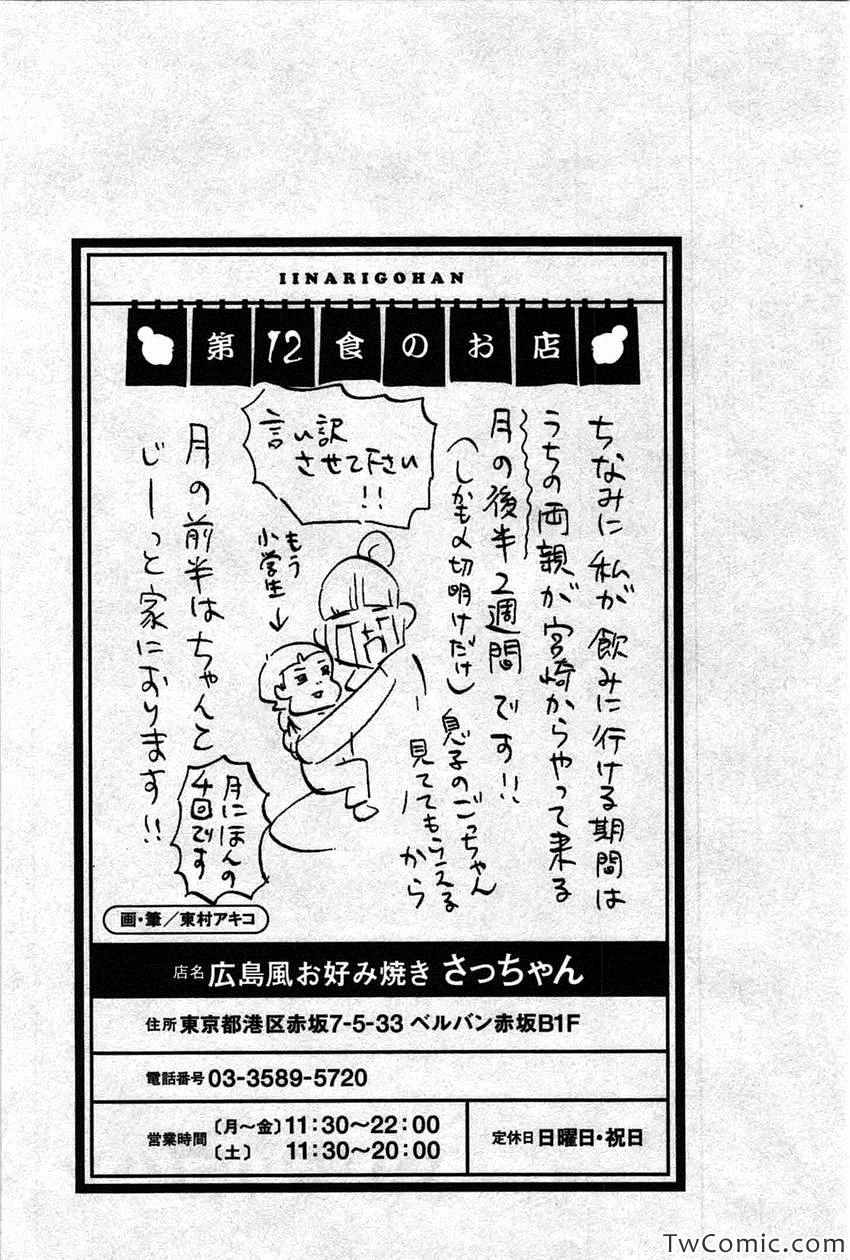 IINARIGOHAN
第12食のお店
ちなみに私が飲みに行ける期間は
うちの両親が宮崎からやって来る
月の後半2週間です!!
(しかも〆切明けだけ)
息子のごっちゃん
見ててもらえる
から
言い訳
させて下さい
!!
もう
小学生
月の前半はちゃんと
じーっと家におります!!
月にほんの
4回です
画・筆/東村アキコ
店名 広島風お好み焼き さっちゃん
住所 東京都港区赤坂7-5-33 ベルバン赤坂B1F
電話番号 03-3589-5720
営業時間 〔月〜金〕11:30〜22:00
〔土〕 11:30〜20:00
定休日 日曜日・祝日
TwComic.com